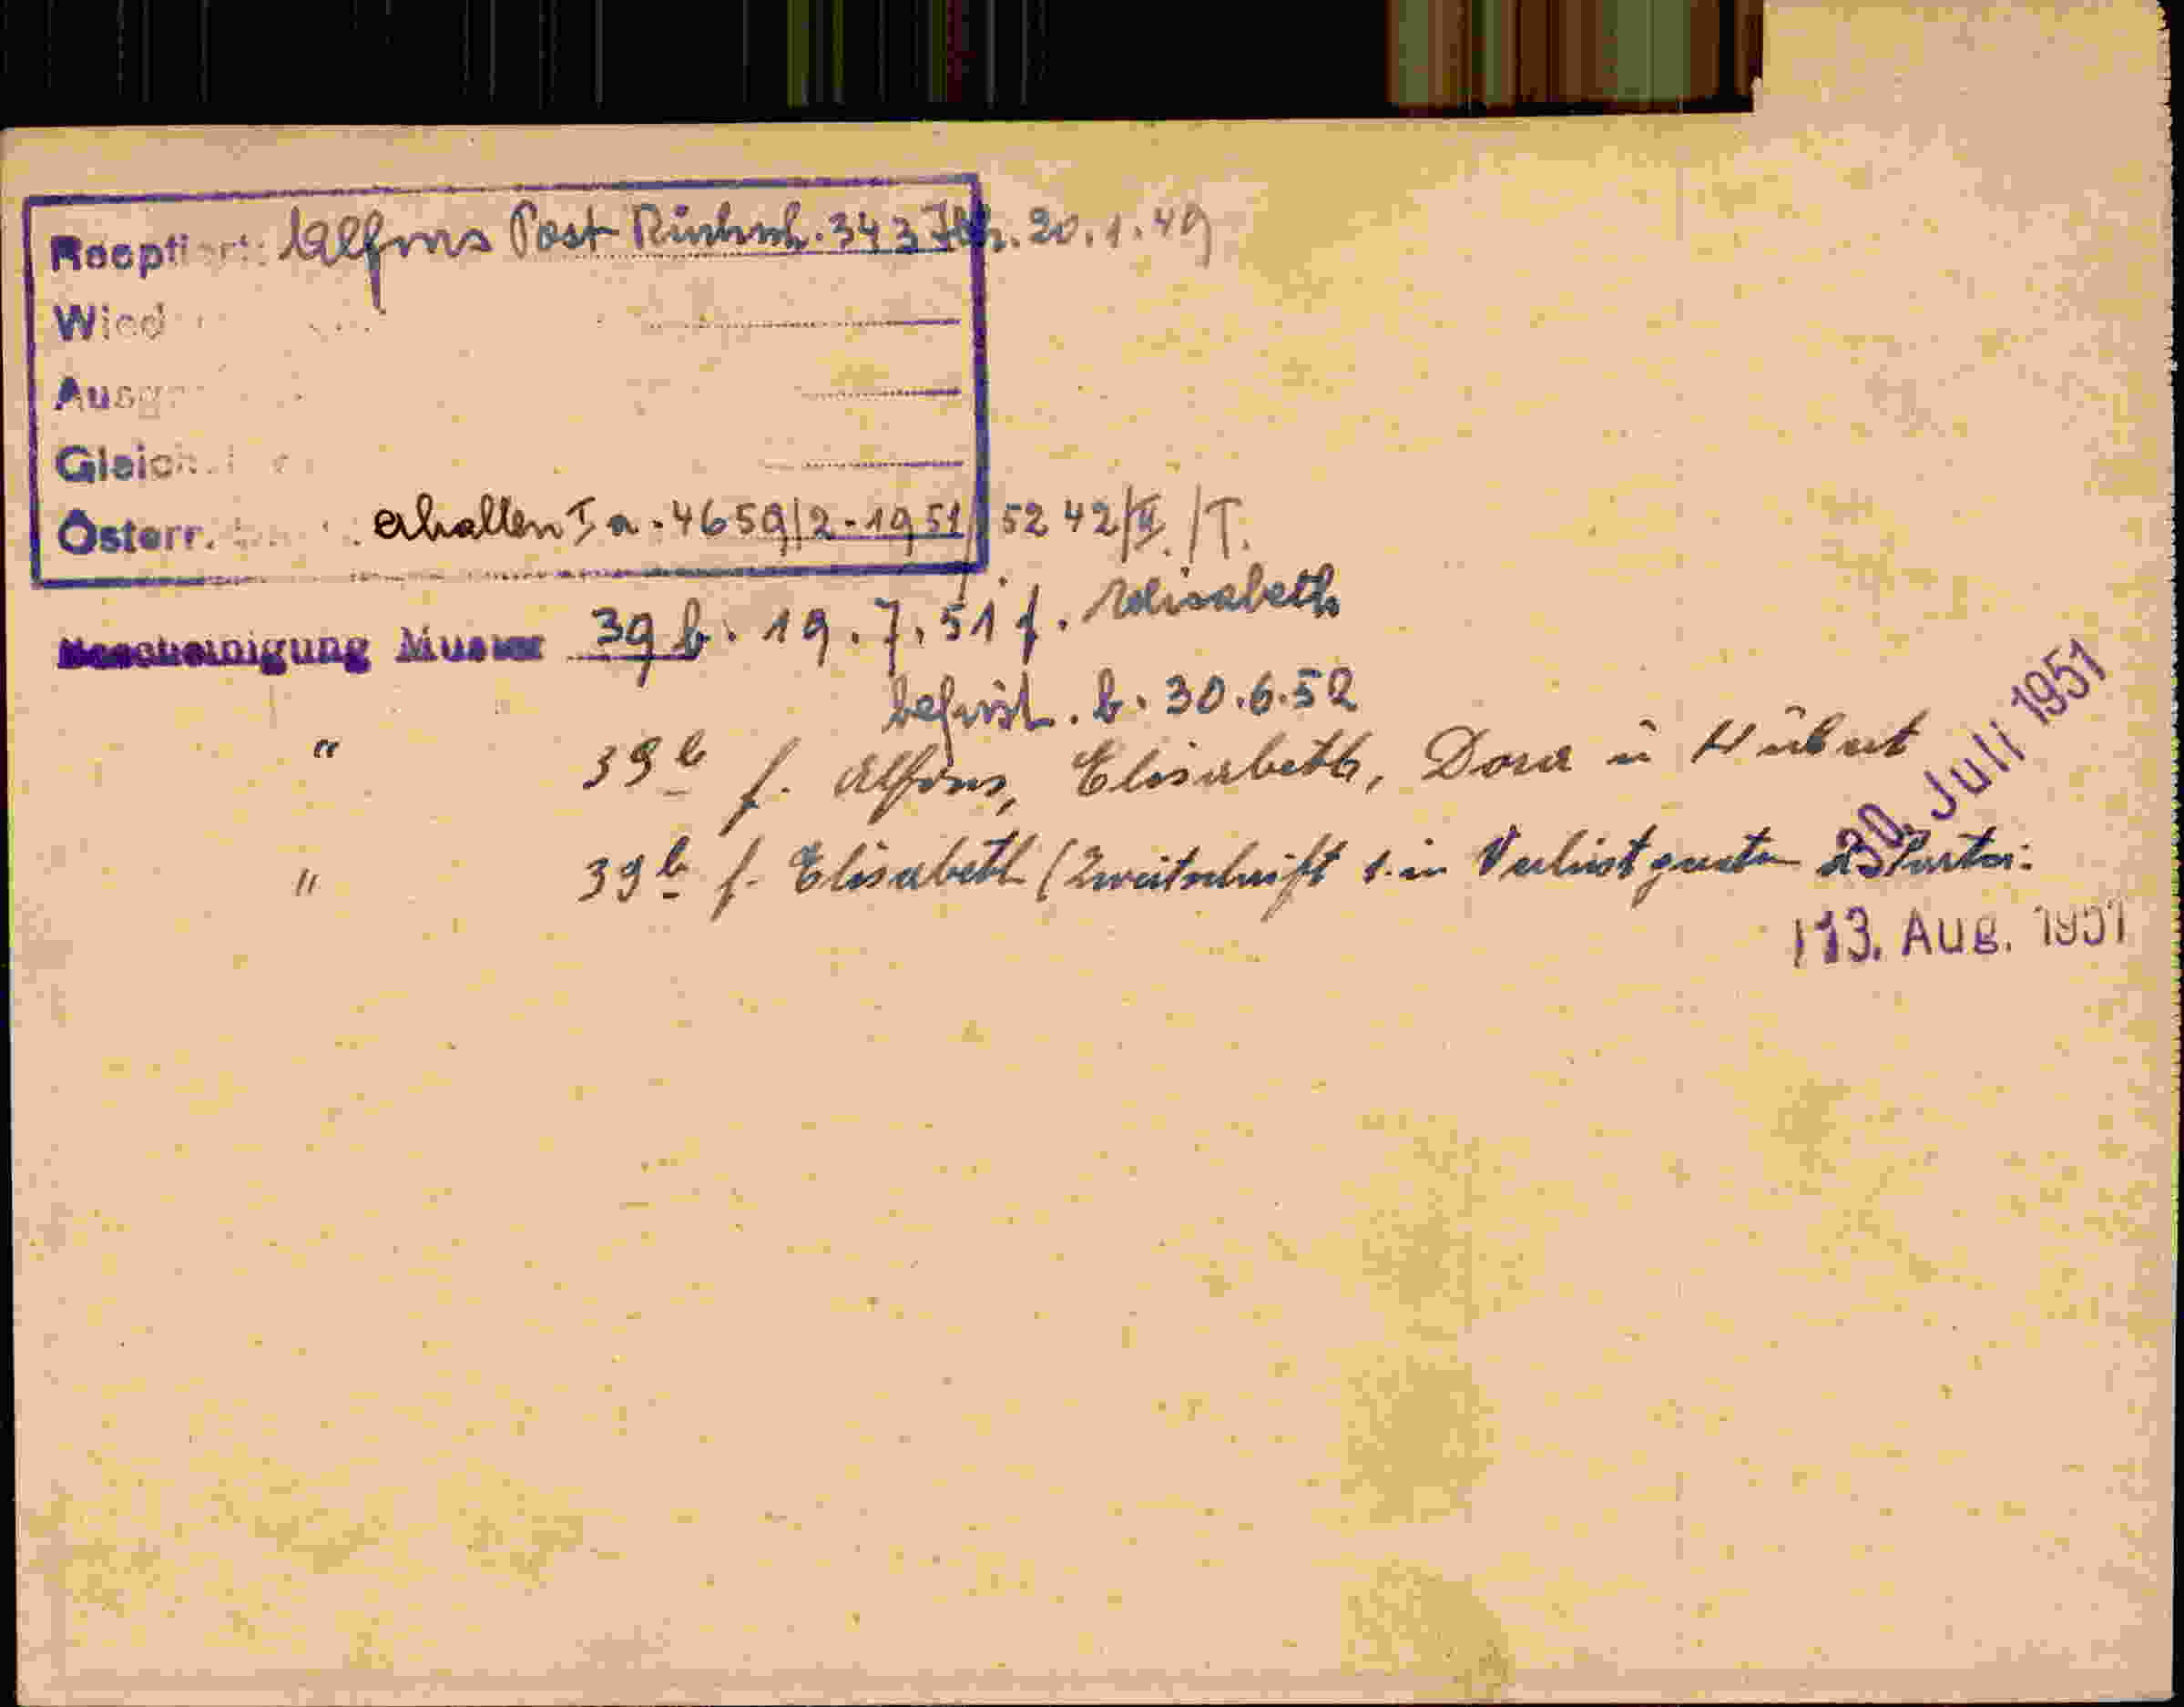 Reoptiert: Alfons Post Rücksch. 343 Jbk. 20.1.49
Wied
Ausg
Gleich
Österr. erhalten I a - 4659/2-1951 5242/II./T.
Bescheinigung Muster 39 b. 19.7.51 f. Elisabeth
befrist. b. 30.6.52
" 39 b f. Alfons, Elisabeth, Dora u Hubert
30. Juli 1951
" 39 b f. Elisabeth (Zweitschrift f. in Verlust
13. Aug. 1951